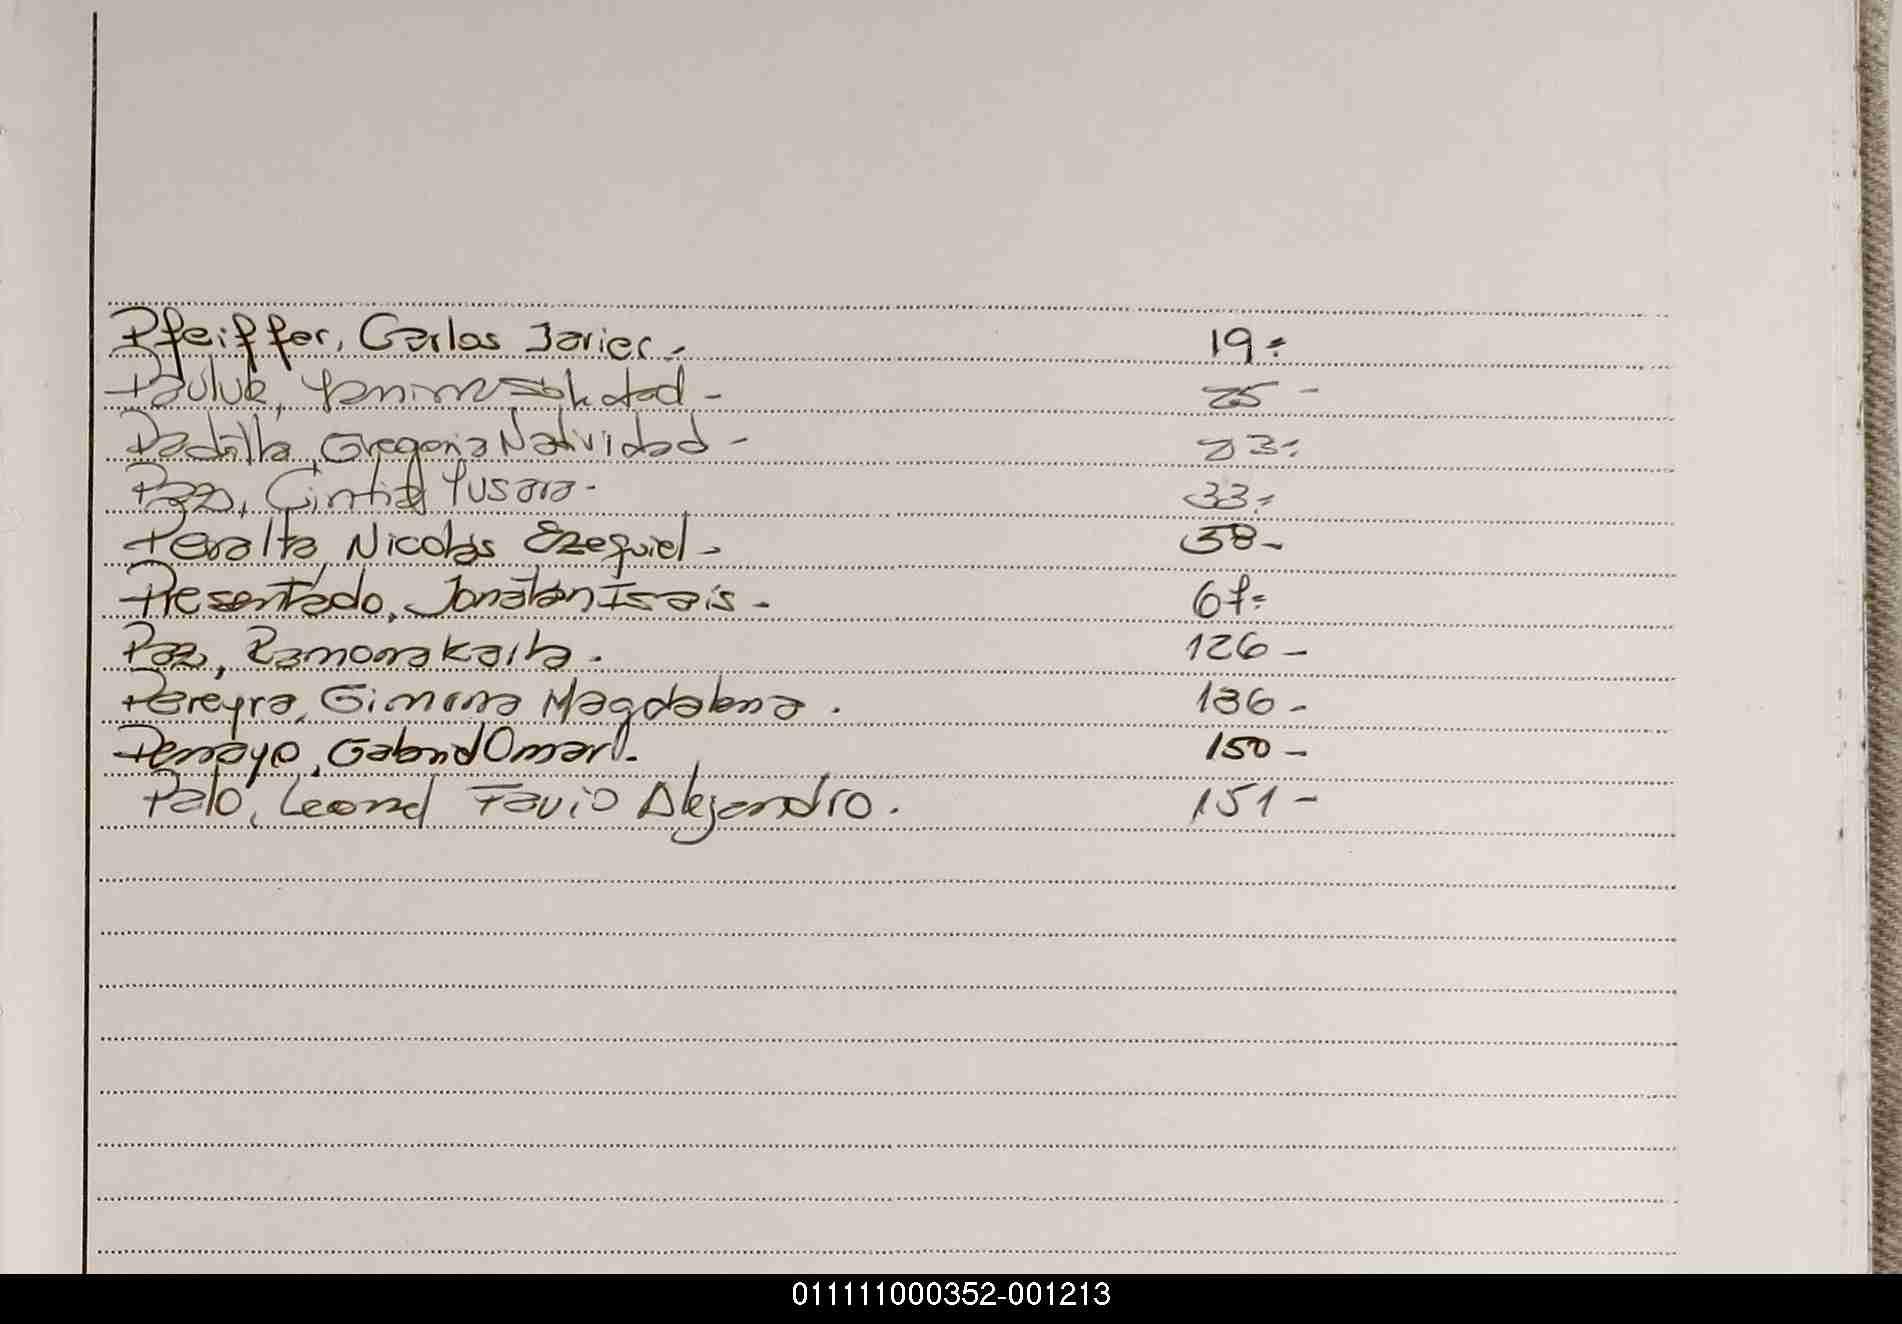 Pfeiffer, Carlos Javier.- 19.-
Pauluk, Yanina Soledad - 25 -
Padilla, Gregoria Natividad - 23.-
Paz, Cintia Yusara - 33.-
Peralta Nicolás Ezequiel - 38-
Presentado, Jonatan Isaís - 67.-
Paz, Ramona Karla. 126 -
Pereyra, Gimena Magdalena . 136 -
Gabriel Omar . 150 -
Palo, Leonel Favio Alejandro . 151 -
011111000352-001213